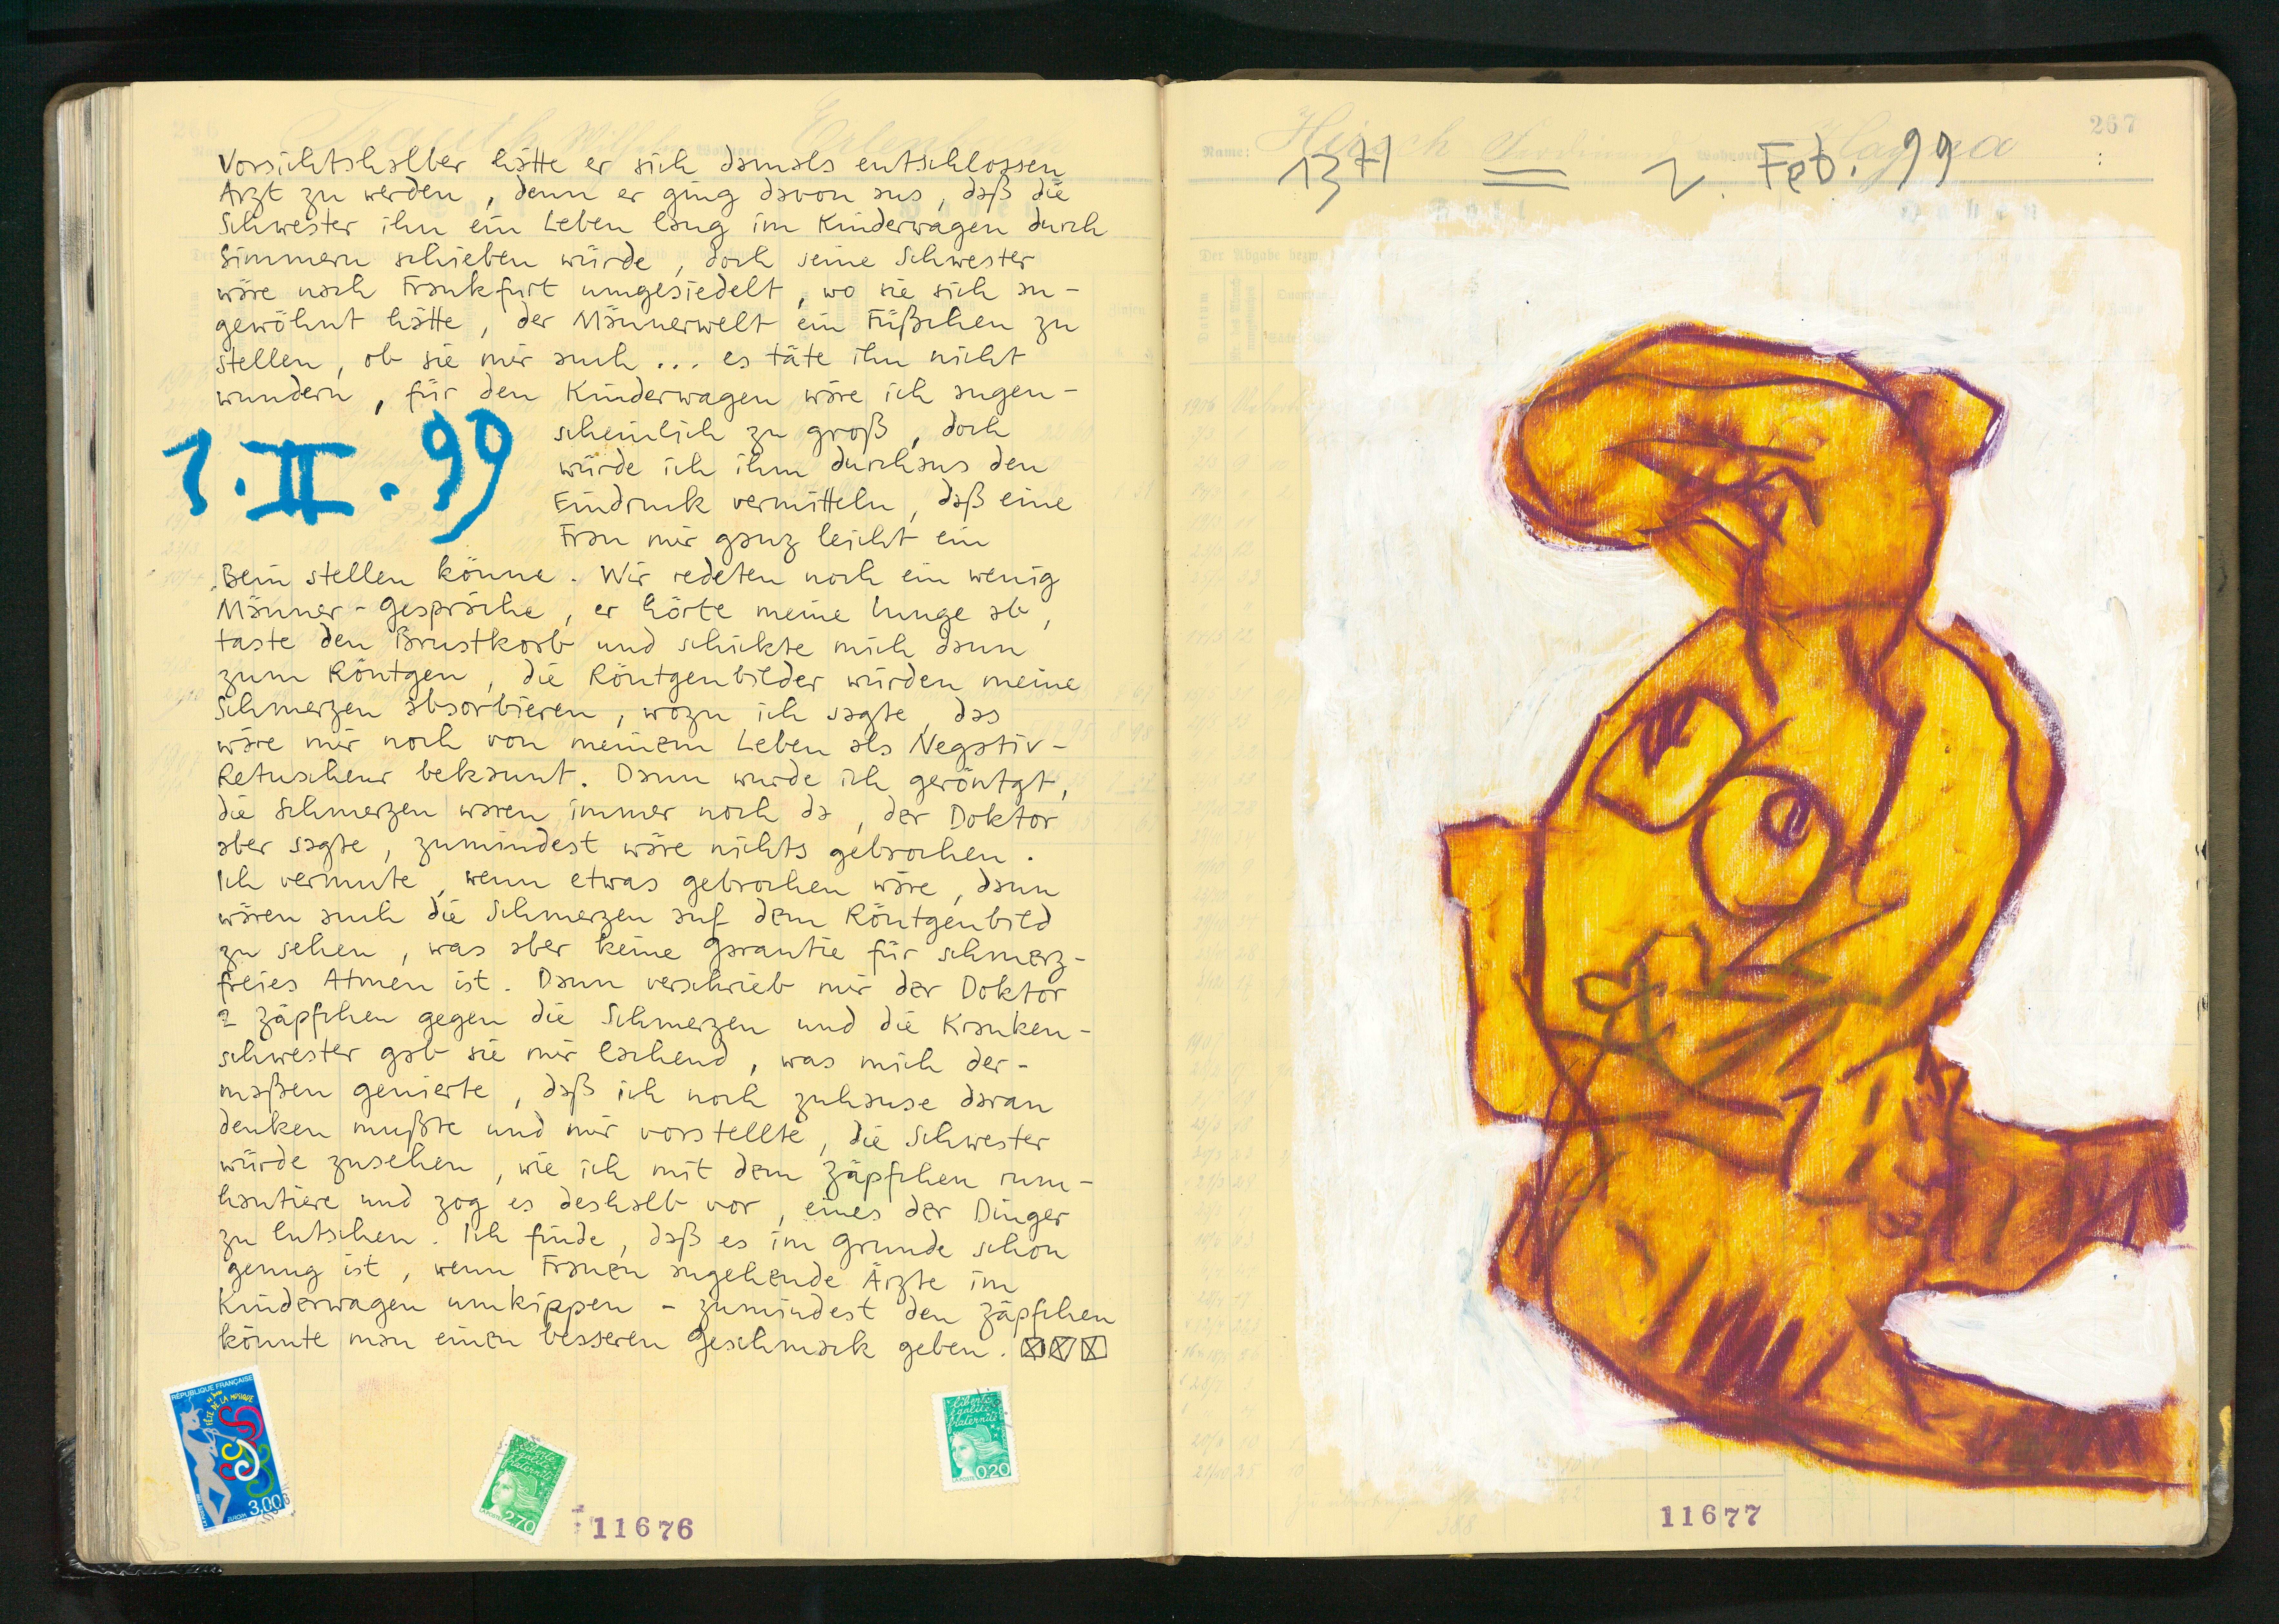 Vorsichtshalber hätte er sich damals entschlossen
Arzt zu werden, denn er ging davon aus, daß die
Schwester ihn ein Leben lang im Kinderwagen durch
Simmern schieben würde, doch seine Schwester
wäre nach Frankfurt umgesiedelt, wo sie sich an-
gewöhnt hätte, der Männerwelt ein Füßchen zu
stellen, ob sie mir auch ... es täte ihn nicht
wundern, für den Kinderwagen wäre ich augen-
scheinlich zu groß, doch
würde ich ihm durchaus den
Eindruck vermitteln, daß eine
Frau mir ganz leicht ein
1.II.99
Bein stellen könne. Wir redeten noch ein wenig
Männer-Gespräche, er hörte meine Lunge ab,
taste den Brustkorb und schickte mich dann
zum Röntgen, die Röntgenbilder würden meine
Schmerzen absorbieren, wozu ich sagte, das
wäre mir noch von meinem Leben als Negativ-
Retuscheur bekannt. Dann wurde ich geröntgt,
die Schmerzen waren immer noch da, der Doktor
aber sagte, zumindest wäre nichts gebrochen.
Ich vermute, wenn etwas gebrochen wäre, dann
wären auch die Schmerzen auf dem Röntgenbild
zu sehen, was aber keine Garantie für schmerz-
freies Atmen ist. Dann verschrieb mir der Doktor
2 Zäpfchen gegen die Schmerzen und die Kranken-
schwester gab sie mir lachend, was mich der-
maßen genierte, daß ich noch zuhause daran
denken mußte und mir vorstellte, die Schwester
würde zusehen, wie ich mit dem Zäpfchen rum-
hantiere und zog es deshalb vor, eines der Dinger
zu lutschen. Ich finde, daß es im Grunde schon
genug ist, wenn Frauen angehende Ärzte im
Kinderwagen umkippen - zumindest den Zäpfchen
könnte man einen besseren Geschmack geben.
RÉPUBLIQUE FRANÇAISE
FÊTE DE LA MUSIQUE
3,00
EUROPA
Liberté
égalité
fraternité
LA POSTE
2,70
Liberté
égalité
fraternité
LA POSTE
0,20
11676
267
Name: Hirsch
2. Feb. 99
Der Abgabe
Datum
1906
1907
11677